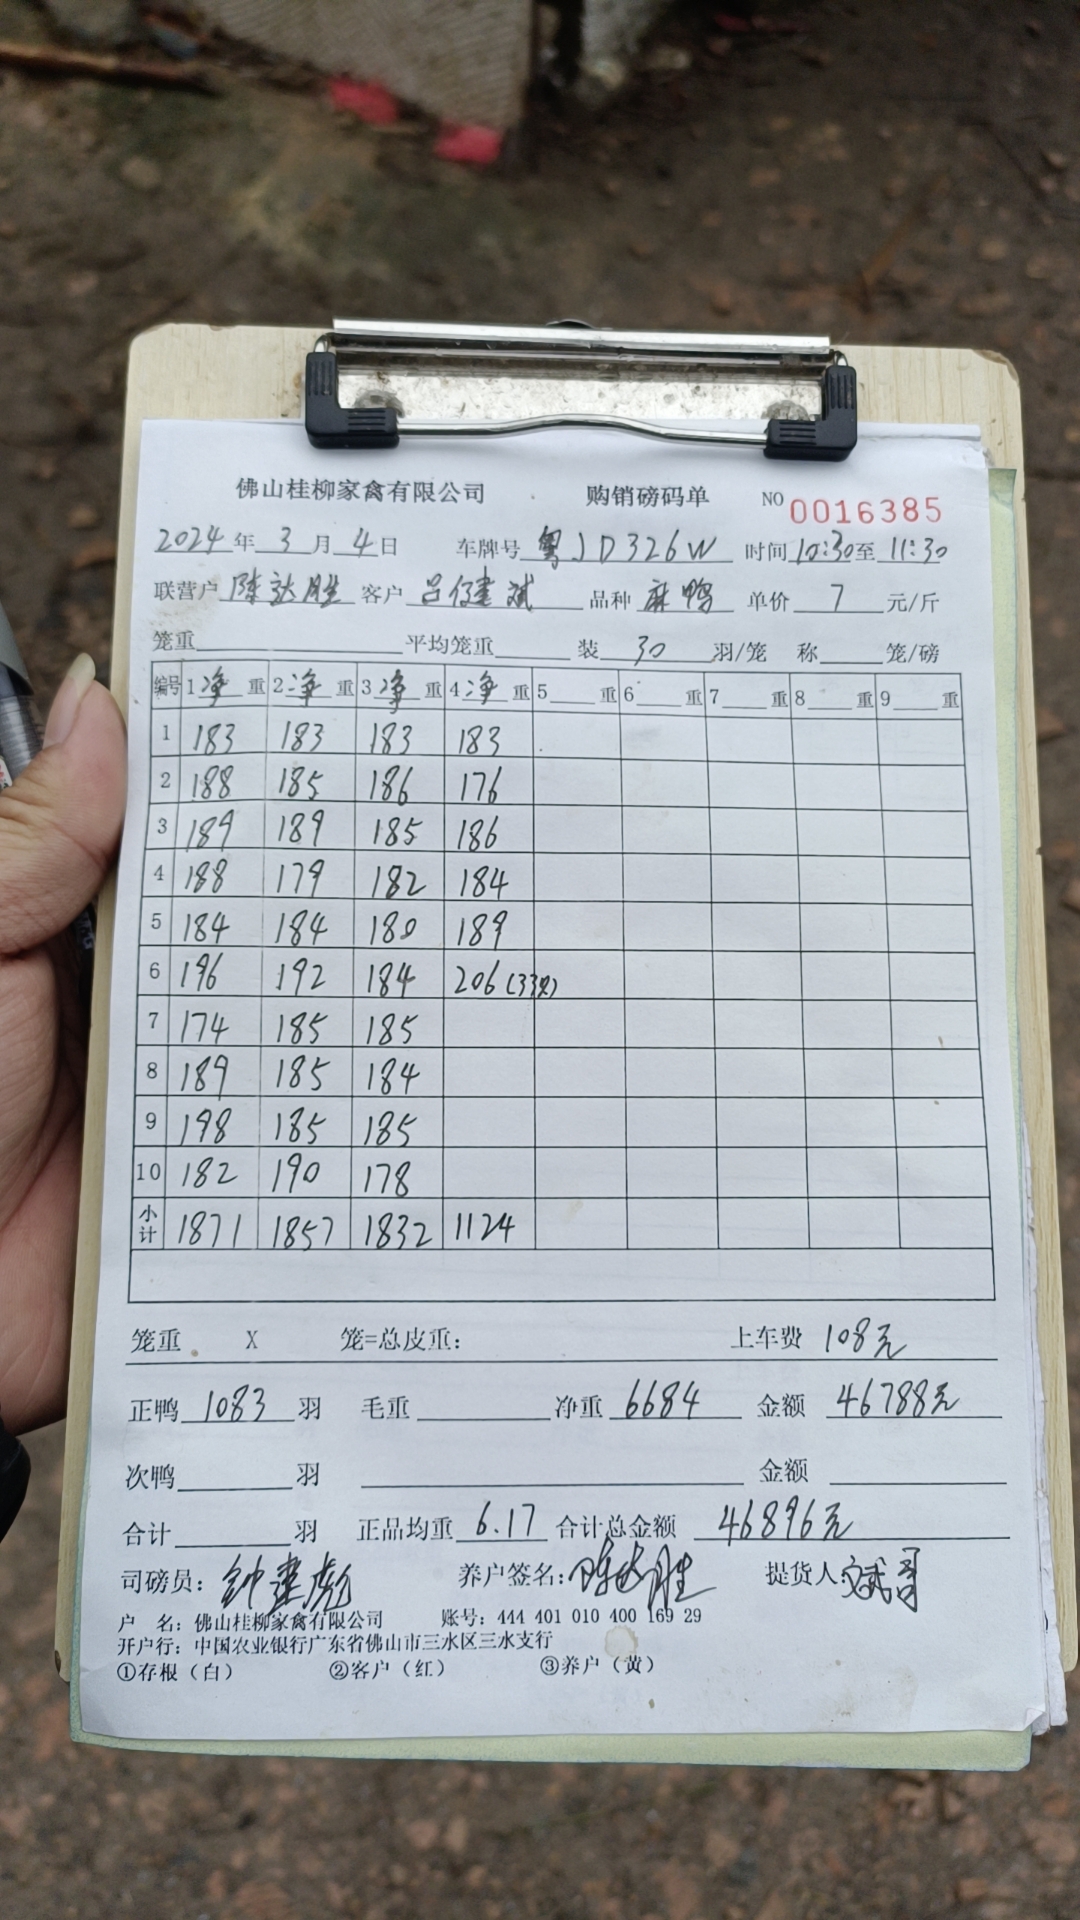 佛山桂柳家禽有限公司 购销磅码单 NO 0016385
2024年 3 月 4 日 车牌号 粤JD326W 时间 10:30 至 11:30
联营户 陈达胜 客户 吕健斌 品种 麻鸭 单价 7 元/斤
笼重 平均笼重 装 30 羽/笼 称 笼/磅
编号 1 净 重 2 净 重 3 净 重 4 净 重 5 重 6 重 7 重 8 重 9 重
1 183 183 183 183
2 188 185 186 176
3 189 189 185 186
4 188 179 182 184
5 184 184 180 189
6 196 192 184 206 (33只)
7 174 185 185
8 189 185 184
9 198 185 185
10 182 190 178
小计 1871 1857 1832 1124
笼重 X 笼=总皮重: 上车费 108元
正鸭 1083 羽 毛重 净重 6684 金额 46788元
次鸭 羽 金额
合计 羽 正品均重 6.17 合计总金额 46896元
司磅员: 钟建彪 养户签名: 陈达胜 提货人: 斌哥
户 名: 佛山桂柳家禽有限公司 账号: 444 401 010 400 169 29
开户行: 中国农业银行广东省佛山市三水区三水支行
①存根(白) ②客户(红) ③养户(黄)